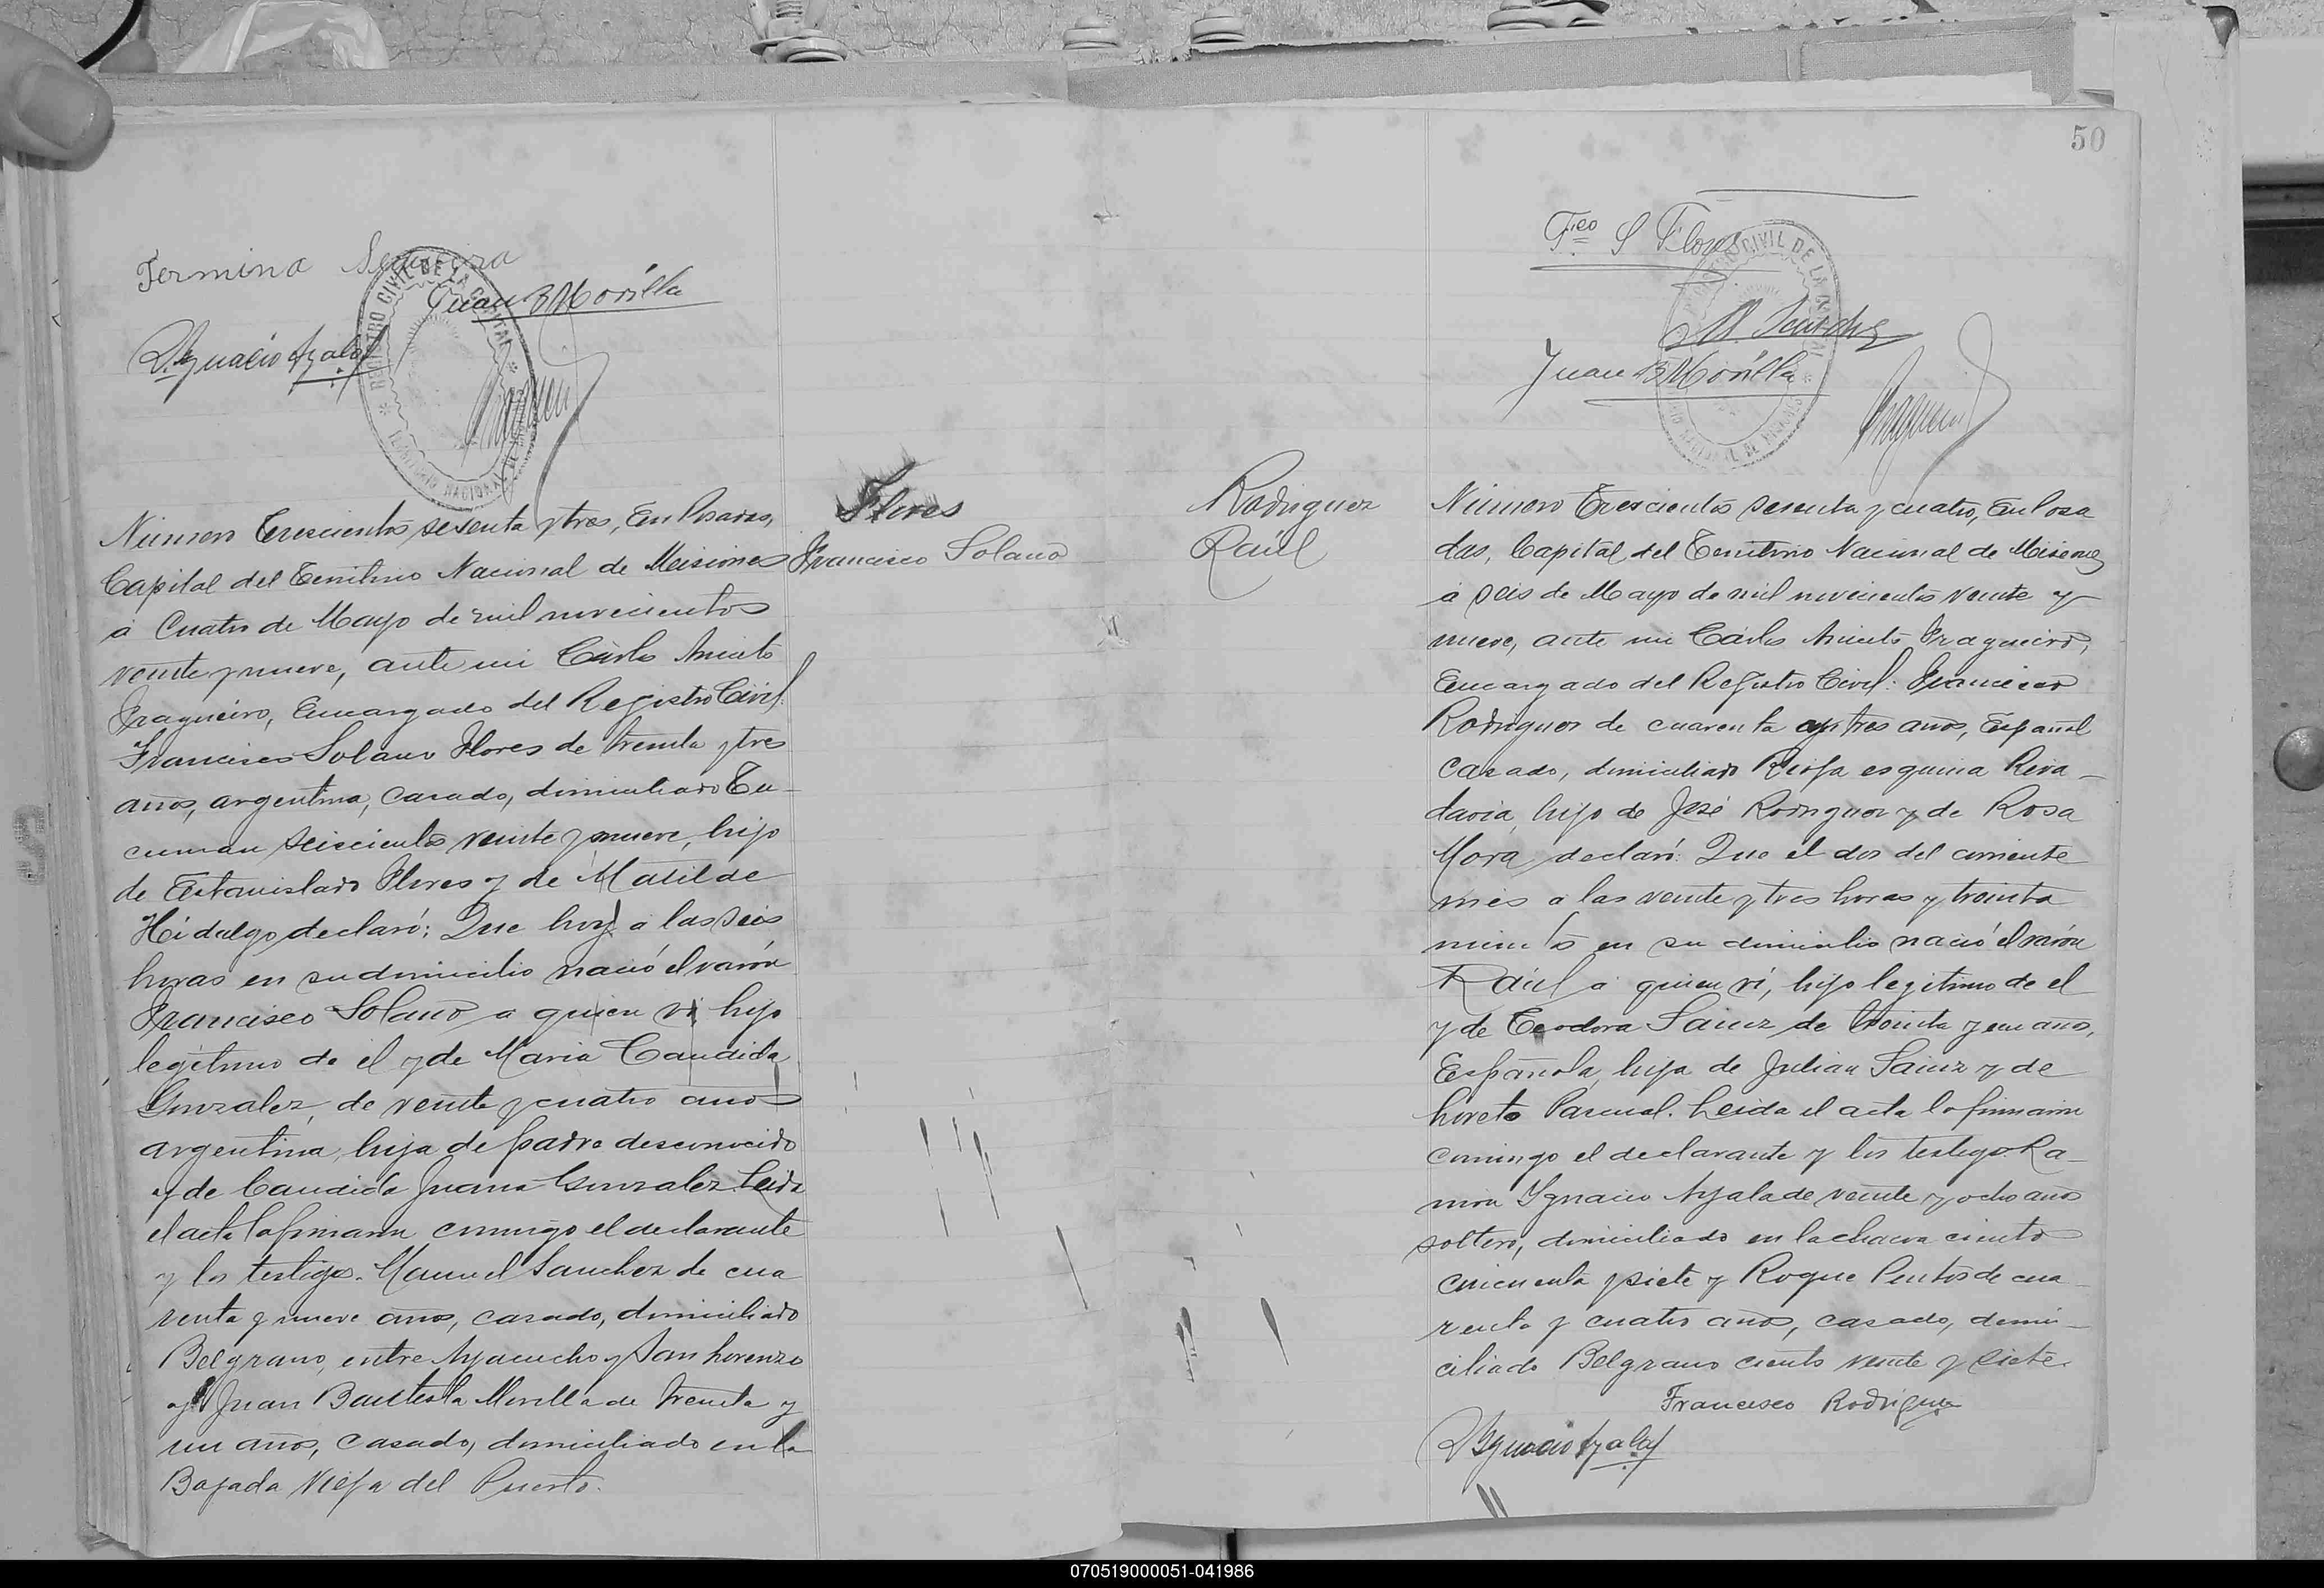 Termina Sequeira
Juan B Morilla
R. Ygnacio Ayala
REGISTRO CIVIL DE LA CAPITAL
TERRITORIO NACIONAL DE MISIONES
Flores
Francisco Solano
Número Trescientos sesenta y tres, En Posadas,
Capital del Territorio Nacional de Misiones
á Cuatro de Mayo de mil novecientos
veinte y nueve, ante mi Cárlos Aniceto
Fragueiro, Encargado del Registro Civil:
Francisco Solano Flores de treinta y tres
años, argentino, casado, domiciliado Tu-
cuman seiscientos veinte y nueve, hijo
de Estanislado Flores y de Matilde
Hidalgo declaró: Que hoy a las seis
horas en su domicilio nació el varón
Francisco Solano a quien vi hijo
legítimo de él y de Maria Candida
Gonzalez, de veinte y cuatro años
argentina, hija de padre desconocido
y de Candida Juana Gonzalez. Leida
el acta la firmaron conmigo el declarante
y los testigos. Manuel Sanchez de cua
renta y nueve años, casado, domiciliado
Belgrano, entre Ayacucho y San Lorenzo
y Juan Bautista Morilla de treinta y
un años, casado, domiciliado en la
Bajada Vieja del Puerto.
50
Fco S Flores
M. Sanchez
Juan B Morilla
Rodriguez
Raúl
Número Trescientos sesenta y cuatro, En Posa
das, Capital del Territorio Nacional de Misiones
á seis de Mayo de mil novecientos veinte y
nueve, ante mi Cárlos Aniceto Fragueiro,
Encargado del Registro Civil: Francisco
Rodriguez de cuarenta y tres años, Español
casado, domiciliado Rioja esquina Riva-
davia, hijo de José Rodriguez y de Rosa
Mora declaró: Que el dos del corriente
mes a las veinte y tres horas y treinta
minutos en su domicilio nació el varón
Raúl a quien ví, hijo legitimo de el
y de Teodora Sainz de treinta y un años,
Española, hija de Julian Sainz y de
Loreto Pascual. Leida el acta la firmaron
conmigo el declarante y los testigos. Ra-
món Ygnacio Ayala de veinte y ocho años
soltero, domiciliado en la chacra ciento
cincuenta y siete y Roque Pintos de cua-
renta y cuatro años, casado, domi-
ciliado Belgrano ciento veinte y siete.
Francisco Rodriguez
R Ygnacio Ayala
070519000051-041986